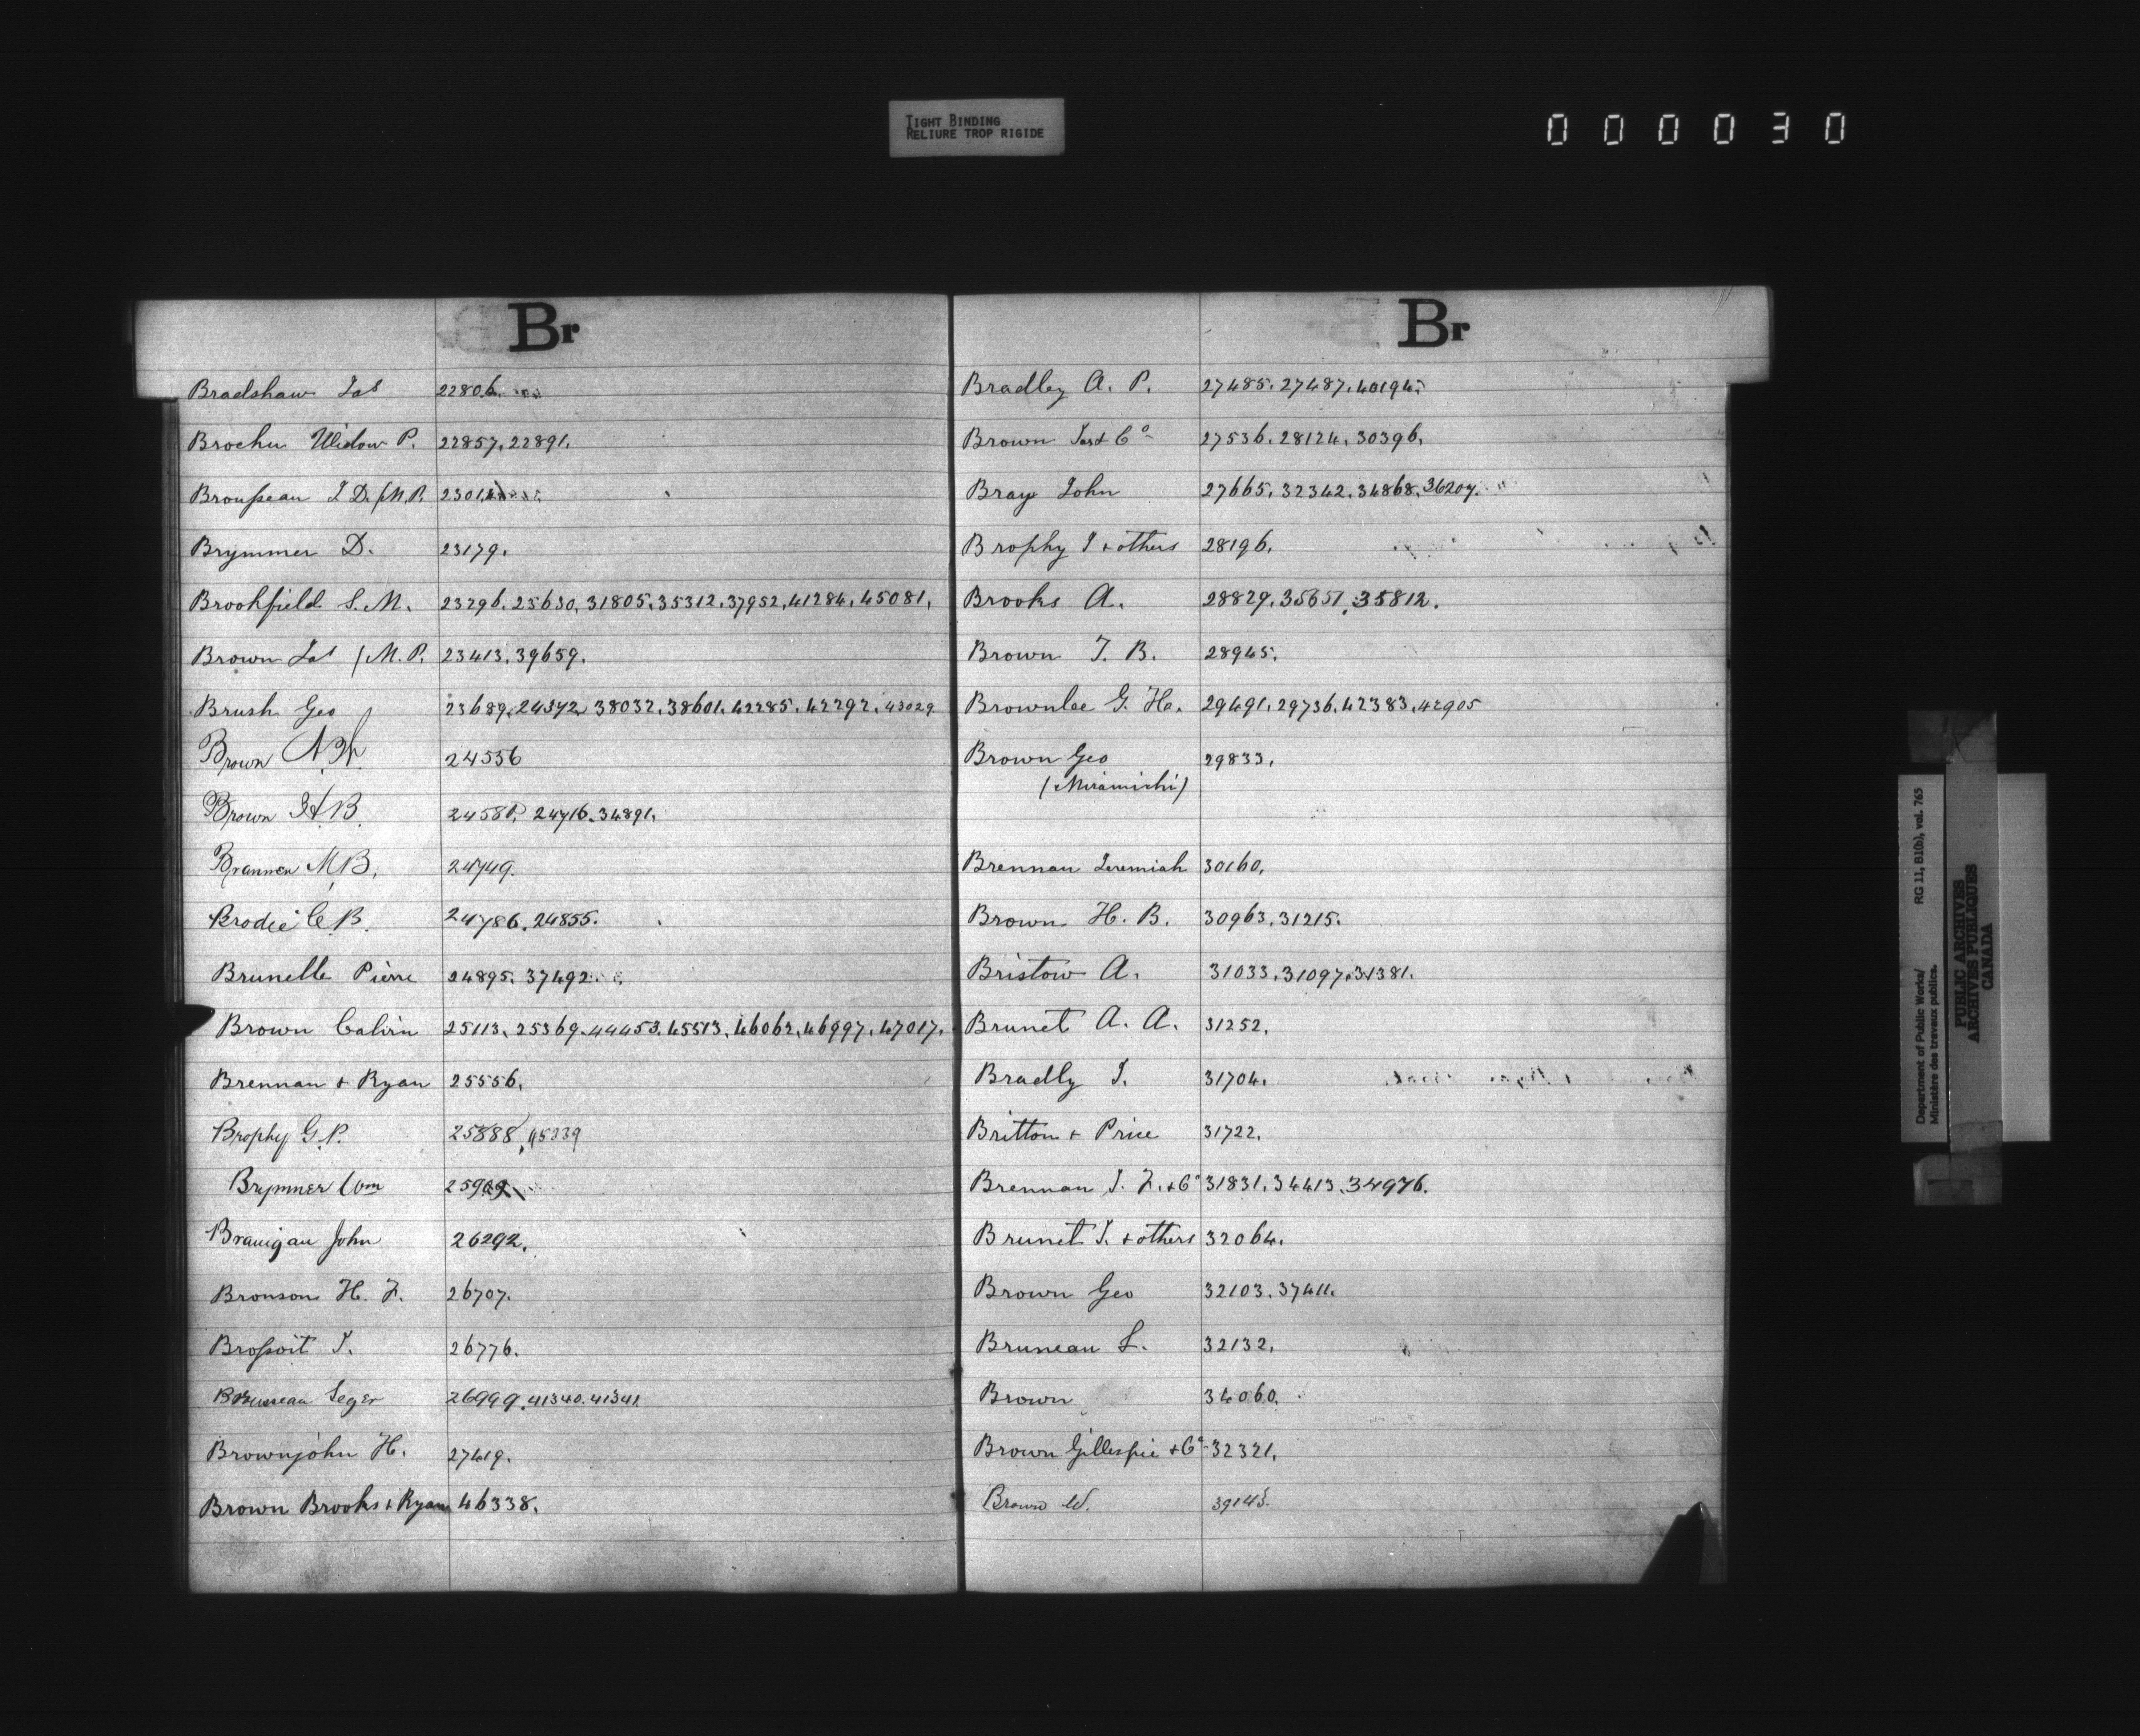 TIGHT BINDING
RELIURE TROP RIGIDE
000030
Br
Bradshaw Jas 22806.
Brochu Widow P. 22857, 22891.
Brousseau J D. (M.P.
Brymmer D. 23179.
Brookfield S. M. 23296, 25630, 31805, 35312, 37952, 41284, 45081,
Brown Jas (M.P. 23413, 39659.
Brush Geo 23689, 24372, 38032, 38601, 42285, 42292, 43029
Brown 24556
Brown H.B. 24716, 34891.
Brannen M.B. 24749.
Brodie C.B. 24786, 24855.
Brunelle Pierre 24895. 37492
Brown Calvin 25113, 25369, 44453, 45513, 46062, 46997, 47017,
Brennan & Ryan 25556.
Brophy G.P. 25888,
Brymner Wm
Branigan John 26292.
Bronson H. F. 26707.
Brossoit J. 26776.
Brusseau Leger 26999, 41340, 41341.
Brownjohn H. 27419.
Brown Brooks & Ryan 46338.
Br
Bradley A. P. 27485, 27487, 40194
Brown Jas & Co 27536, 28124, 30396,
Bray John 27665, 32342, 34868, 36207.
Brophy J & others 28196.
Brooks A. 28829, 35651, 35812.
Brown J. B. 28945.
Brownlee G. Ha. 29491, 29736, 42383, 42905
Brown Geo 29833,
(Miramichi)
Brennan Jeremiah 30160,
Brown H. B. 30963, 31215.
Bristow A. 31033, 31097, 31381.
Brunet A. A. 31252,
Bradly J. 31704.
Britton & Price 31722,
Brennan J. F. & Co 31831, 34413, 34976.
Brunet J. & others 32064.
Brown Geo 32103, 37411.
Bruneau L. 32132,
Brown 34060.
Brown Gillespie & Co 32321,
Brown W. 39143.
Department of Public Works/ RG 11, B1(b), vol. 765
Ministère des travaux publics.
PUBLIC ARCHIVES
ARCHIVES PUBLIQUES
CANADA